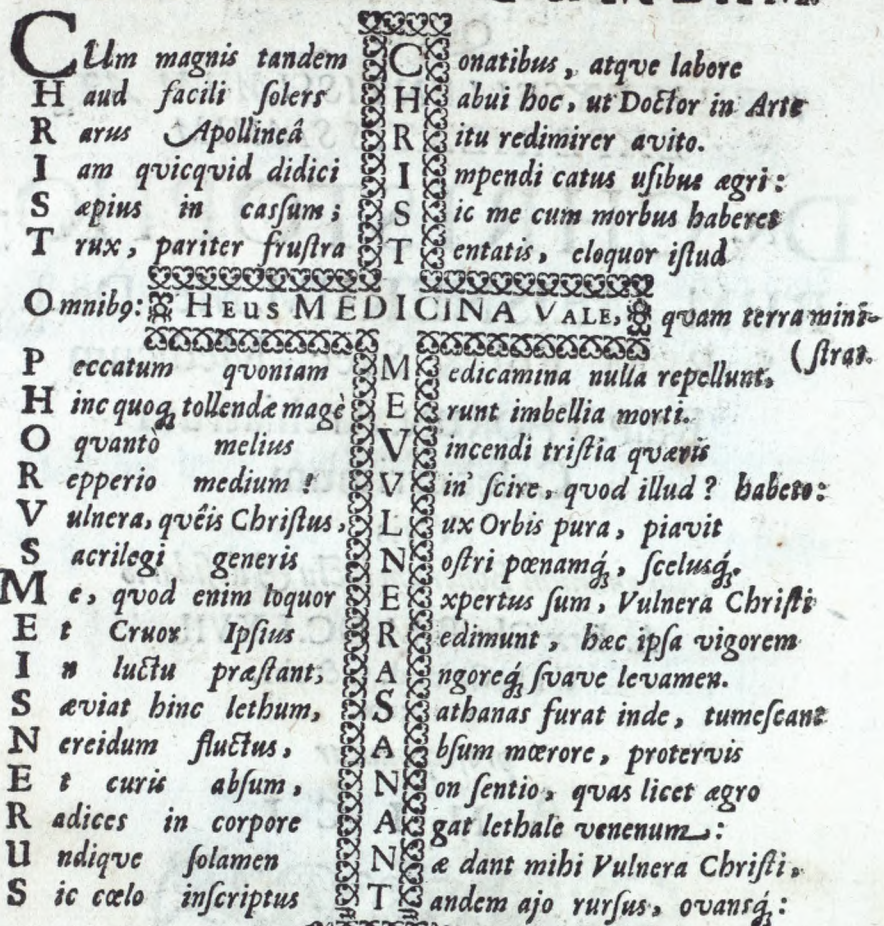 CUm magnis tandem Conatibus, atqve labore
Haud facili ſolers Habui hoc, ut Doctor in Arte
Rarus Apollineâ Ritu redimirer avito.
Iam qvicqvid didici Impendi catus uſibus ægri:
Sæpius in caſſum; Sic me cum morbus haberet
Trux, pariter fruſtra Tentatis, eloquor iſtud
Omnibꝰ: HEUS MEDICINA VALE, quam terra mini-
(ſtrat.
Peccatum qvoniam Medicamina nulla repellunt,
Hinc quoqꝫ tollendæ magè Erunt imbellia morti.
O qvantò melius Vincendi triſtia qværis
Repperio medium! Vin' ſcire, qvod illud? habeto:
Vulnera, qvêis Chriſtus, Lux Orbis pura, piavit
Sacrilegi generis Noſtri pœnamqꝫ́, ſcelusqꝫ́.
Me, qvod enim loquor Expertus ſum, Vulnera Chriſti
Et Cruor Ipſius Redimunt, hæc ipſa vigorem
In luctu præſtant, Angoreqꝫ́ ſvave levamen.
Sæviat hinc lethum, Sathanas furat inde, tumeſcant
Nereidum fluctus, Abſum mœrore, protervis
Et curis abſum, Non ſentio, qvas licet ægro
Radices in corpore Agat lethale venenum:
Undiqve ſolamen Næ dant mihi Vulnera Chriſti,
Sic cœlo inſcriptus Tandem ajo rurſus, ovansqꝫ́: